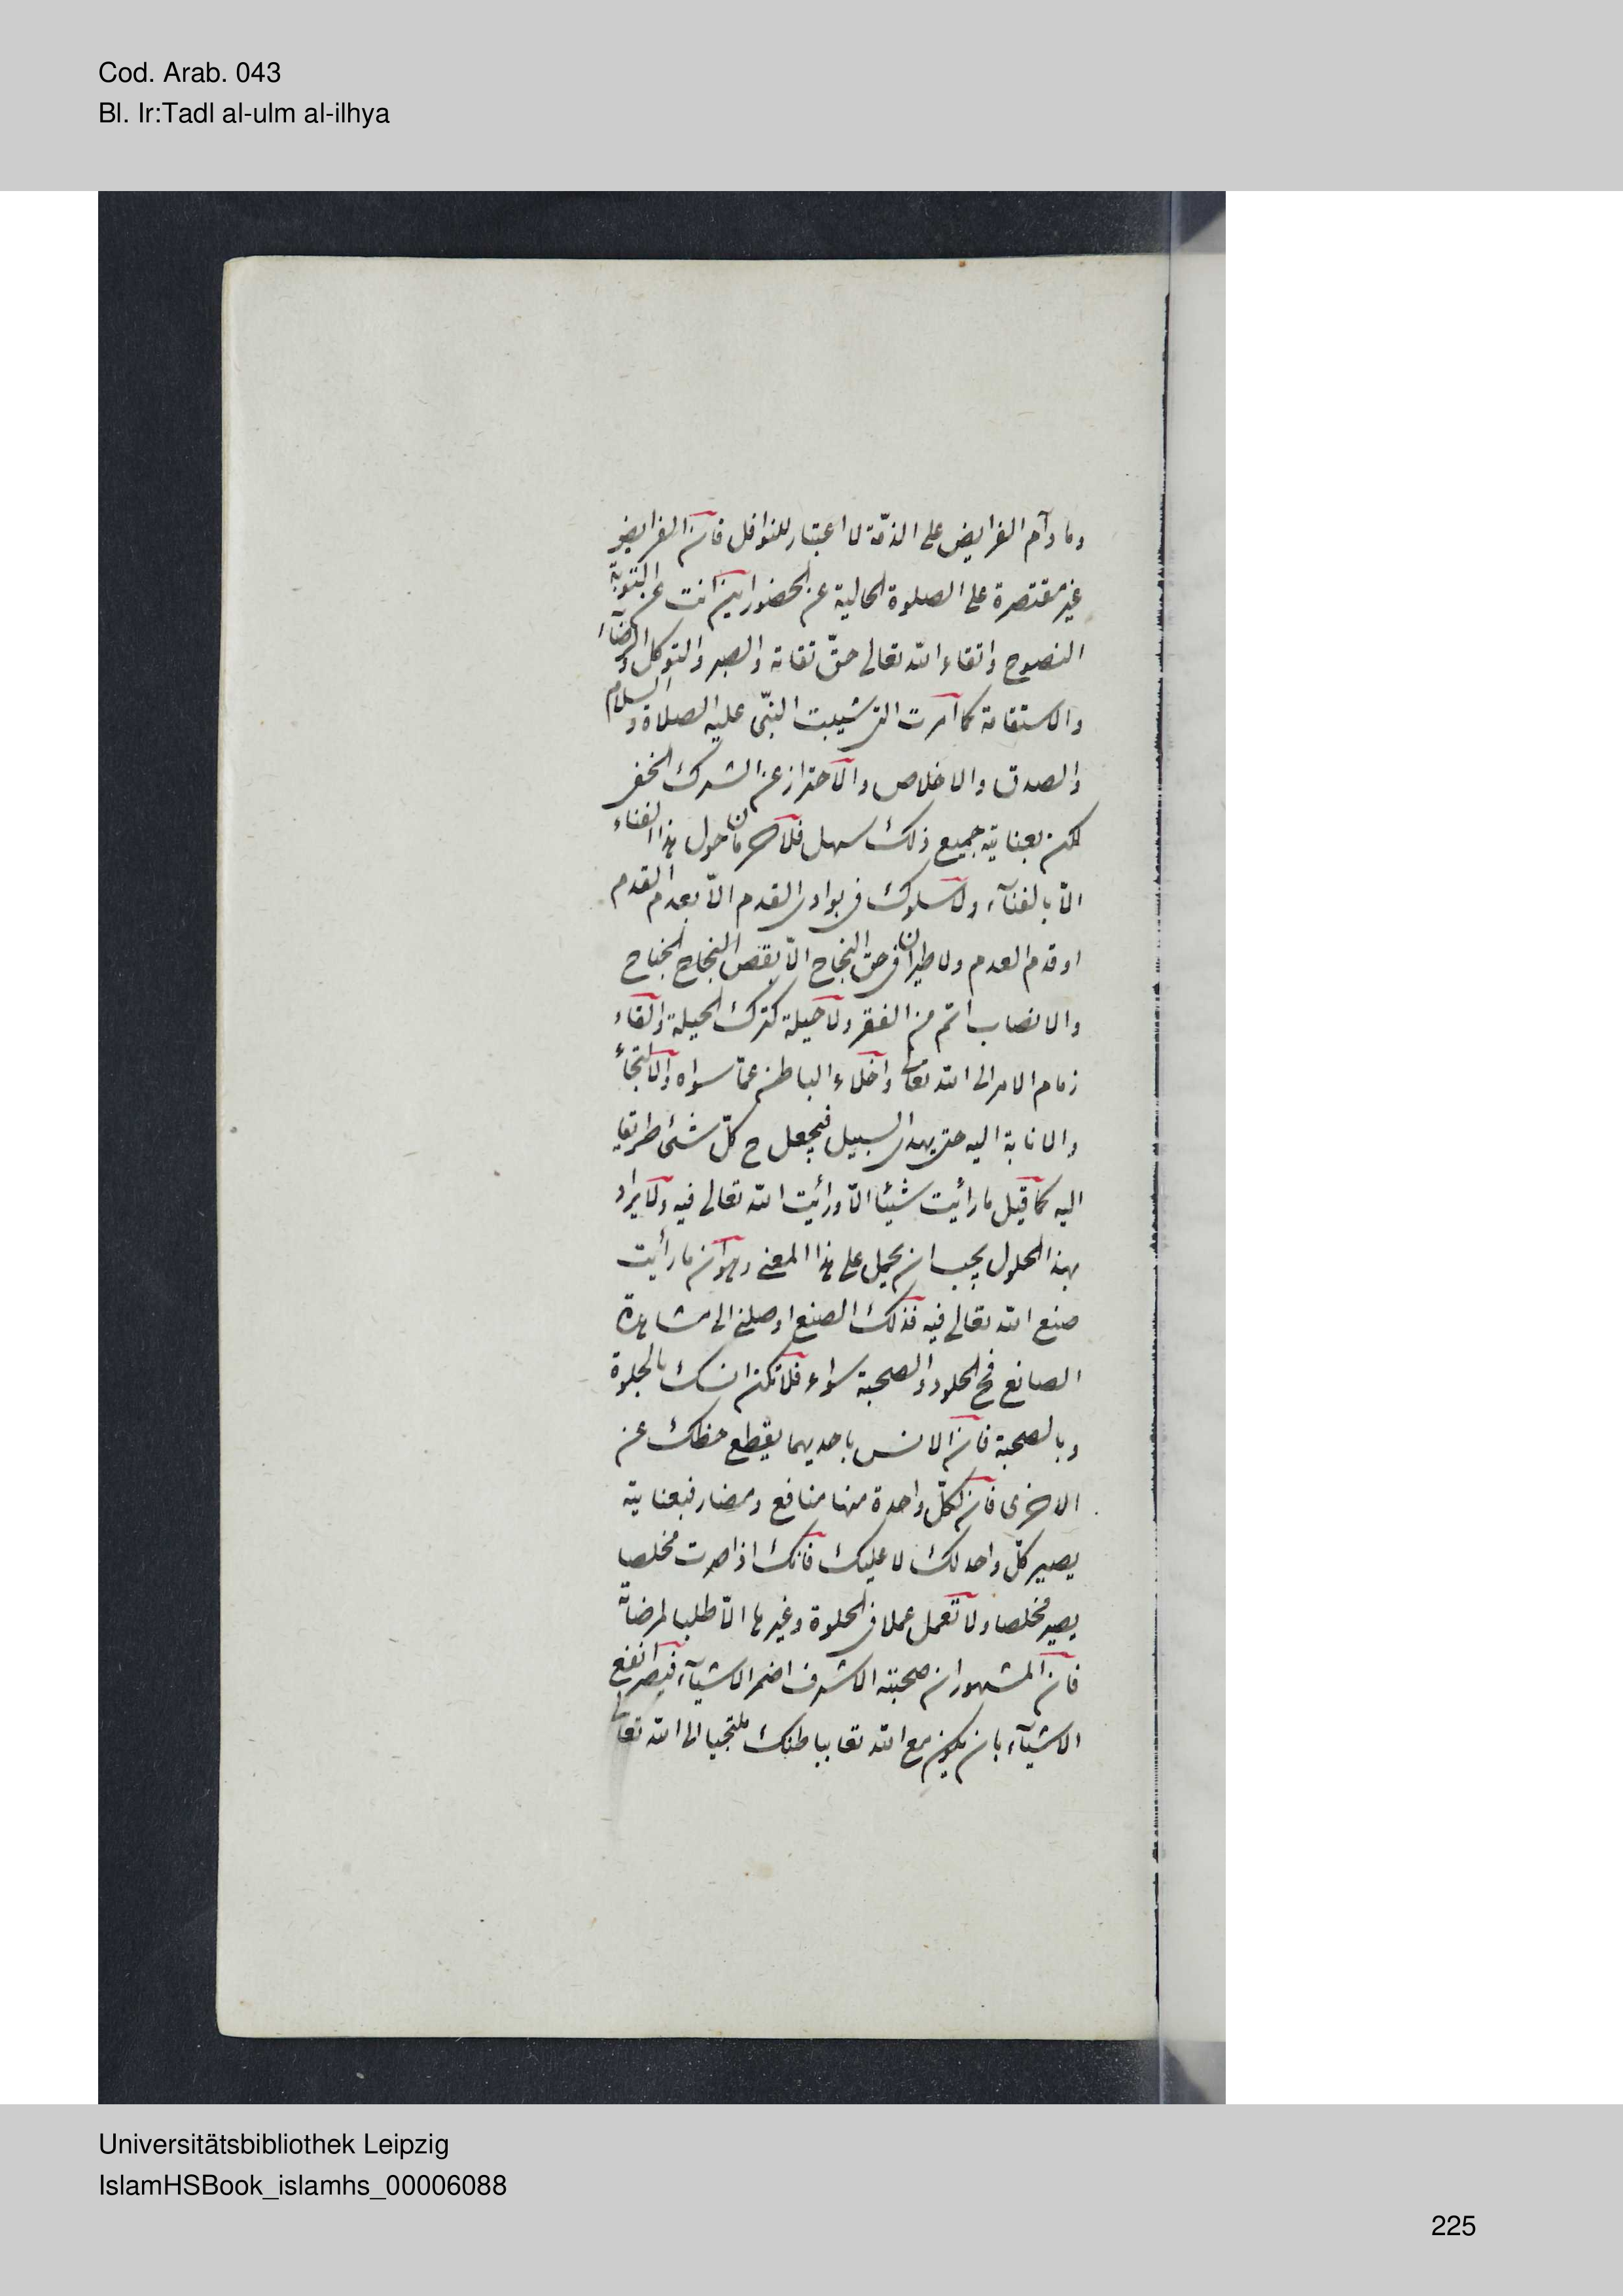 Cod. Arab. 043
Bl. Ir:Tadl al-ulm al-ilhya
وما دآم الفرايض على الذمّة لا اعتبار للنوافل فان الفرايض
غير مقتصرة على الصلوة الخالية عن الحضور اين انت عن التوبة
النصوح واتقاء الله تعالى حقّ تقاته والصبر والتوكل والرضآء
والاستقامة كما امرت التى شيبت النبّى عليه الصلاة والسلام
والصدق والاخلاص والاحتراز عن الشرك الخفى
لكن بعنايته جميع ذلك سهل فلا حرمان حول هذا الفناء
الّا بالفنآء ولا سلوك فى بوادى القدم الّا بعدم القدم
او قدم العدم ولا طيران فى حقّ النجاح الّا بقصّ النجاح الجناح
والانصاب اتم من الفقر ولا حيلة كترك الحيلة والقاء
زمام الامر الى الله تعالى واخلاء الباطن عمّا سواه والالتجأ
والانابة اليه حتى يهدى السبيل فيجعل ح كلّ شئ طريقا
اليه كما قيل ما رأيت شيئا الّا ورأيت الله تعالى فيه ولا يراد
بهذا الحلول يجب ان يحمل على هذا المعنى وهو ان ما رأيت
صنع الله تعالى فيه فذلك الصنع اوصلنى الى مشاهدة
الصانع فح الخلوة والصحبة سواء فلا تكن انسك بالخلوة
وبالصحبة فان الانس باحديهما يقطع حظك عن
الاخرى فان لكلّ واحدة منها منافع ومضار فبعنايته
يصير كلّ واحد لك لا عليك فانك اذا صرت مخلصا
يصير مخلصا ولا تعمل عملا فى الخلوة وغيرها الّا طلبا لمرضاته
فان المشهور ان صحبته الاشرف اضر الاشيآء فيصير انفع
الاشيآء بان يكون مع الله تعا بباطنك ملتجيا الى الله تعالى
Universitätsbibliothek Leipzig
IslamHSBook_islamhs_00006088
225